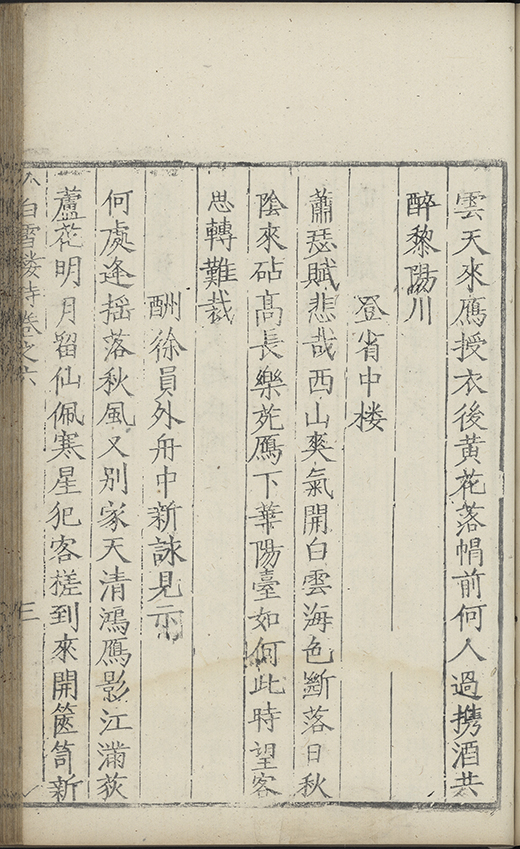 雲天來鴈授衣後黄花落帽前何人過携酒共
醉黎陽川
登省中楼
蕭瑟賦悲哉西山爽氣開白雲海色斷落日秋
陰來砧髙長樂苑鴈下華陽臺如何此時望客
思轉難裁
酬徐員外舟中新詠見示
何處逢揺落秋風又别家天清鴻鴈影江滿荻
蘆花明月留仙佩寒星犯客槎到來開篋笥新
白雪楼詩卷之六
三